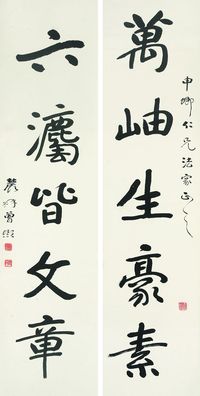 萬岫生豪素
申卿仁兄法家正之
六皆文章
農髯曾熙